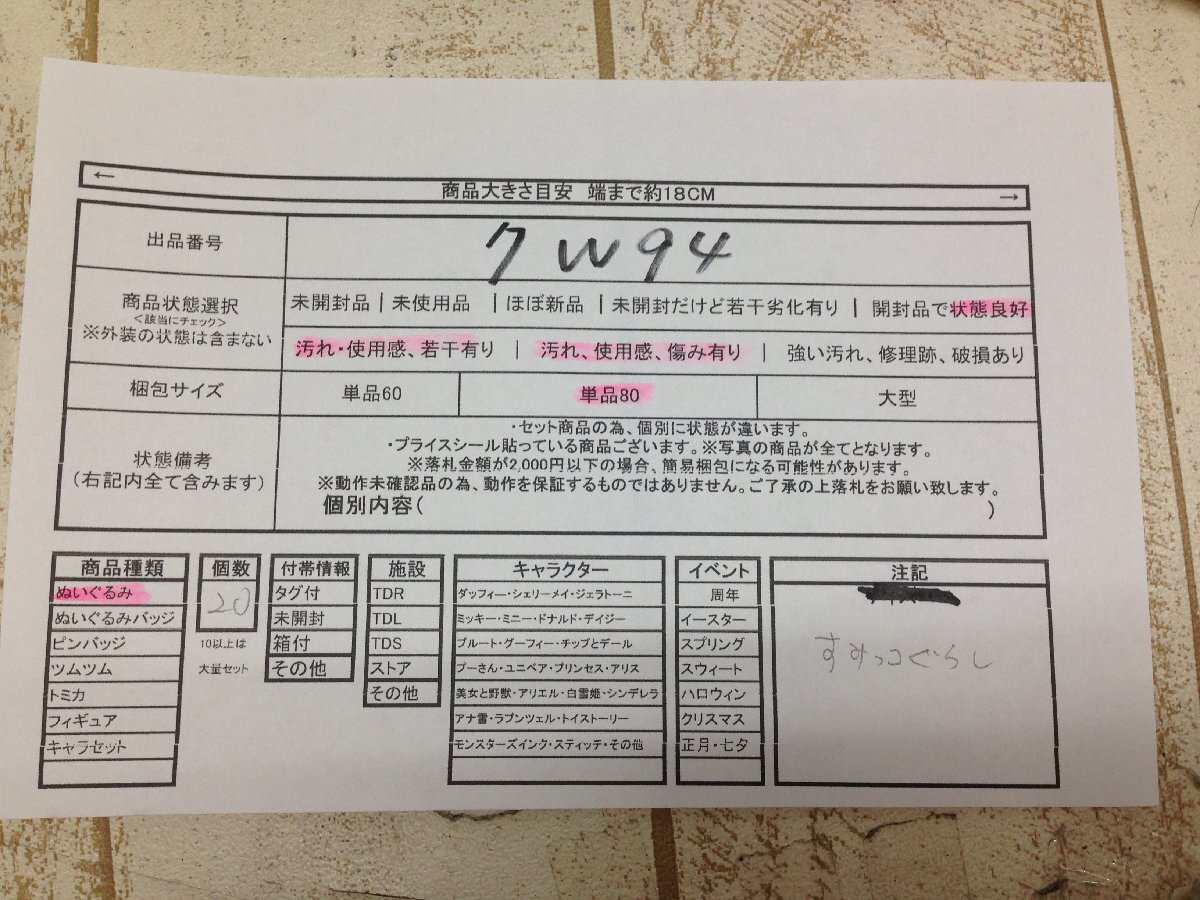 ← 商品大きさ目安 端まで約18CM →
出品番号 7W94
商品状態選択
<該当にチェック>
※外装の状態は含まない
未開封品 | 未使用品 | ほぼ新品 | 未開封だけど若干劣化有り | 開封品で状態良好
汚れ・使用感、若干有り | 汚れ、使用感、傷み有り | 強い汚れ、修理跡、破損あり
梱包サイズ 単品60 単品80 大型
状態備考
(右記内全て含みます)
・セット商品の為、個別に状態が違います。
・プライスシール貼っている商品ございます。※写真の商品が全てとなります。
※落札金額が2,000円以下の場合、簡易梱包になる可能性があります。
※動作未確認品の為、動作を保証するものではありません。ご了承の上落札をお願い致します。
個別内容( )
商品種類
ぬいぐるみ
ぬいぐるみバッジ
ピンバッジ
ツムツム
トミカ
フィギュア
キャラセット
個数
20
10以上は
大量セット
付帯情報
タグ付
未開封
箱付
その他
施設
TDR
TDL
TDS
ストア
その他
キャラクター
ダッフィー・シェリーメイ・ジェラトーニ
ミッキー・ミニー・ドナルド・デイジー
プルート・グーフィー・チップとデール
プーさん・ユニベア・プリンセス・アリス
美女と野獣・アリエル・白雪姫・シンデレラ
アナ雪・ラプンツェル・トイストーリー
モンスターズインク・スティッチ・その他
イベント
周年
イースター
スプリング
スウィート
ハロウィン
クリスマス
正月・七夕
注記
すみっコぐらし